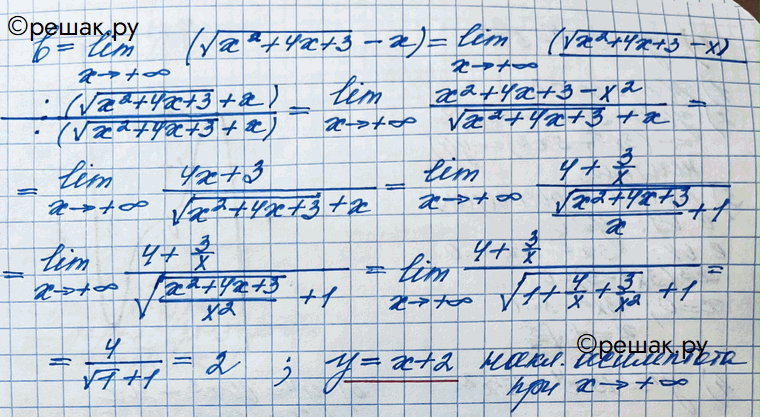 ©решак.ру
b = lim x→+∞ (√(x²+4x+3) − x) = lim x→+∞ (√(x²+4x+3) − x)
· (√(x²+4x+3) + x) / (√(x²+4x+3) + x) = lim x→+∞ (x²+4x+3−x²)/(√(x²+4x+3) + x) =
= lim x→+∞ (4x+3)/(√(x²+4x+3) + x) = lim x→+∞ (4 + 3/x)/(√(x²+4x+3)/x + 1)
= lim x→+∞ (4 + 3/x)/(√((x²+4x+3)/x²) + 1) = lim x→+∞ (4 + 3/x)/(√(1 + 4/x + 3/x²) + 1) =
©решак.ру
= 4/(√1 + 1) = 2 ; y = x+2 накл. асимптота
при x→+∞